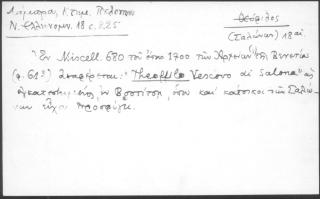 Λάμπρος, Κ. Πελοπον
Ν. Ελληνομν. 18 σ. 225
Θεόφιλος
(Σαλώνων) 18 αἰ.
Ἐν Miscell. 680 τοῦ ἔτους 1700 τῶν Ἀρχείων τῆς Βενετίας
(φ. 61) ἀναφέρεται: "Theoffilo Vescovo di Salona" ὡς
ἐγκατεστημένος ἐν Βοστίτσῃ, ὅπου καὶ κάτοικοι τῶν Σαλώ-
νων εἶχον προσφύγει.